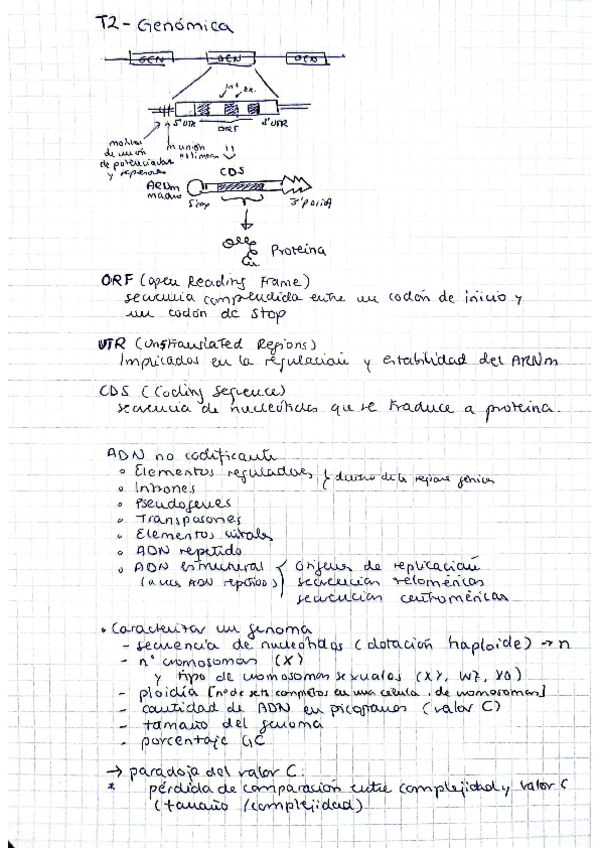 T2 - Genómica
GEN GEN GEN
int ex.
5' UTR ORF 3' UTR
de unión
de potenciadores
y represores
unión
CDS
ARNm
maduro
5'cap 3'poliA
Proteína
ORF (open Reading Frame)
secuencia comprendida entre un codón de inicio y
un codón de stop
UTR (Unstranslated Regions)
Implicadas en la regulación y estabilidad del ARNm
CDS (Coding Sequence)
secuencia de nucleótidos que se traduce a proteína.
ADN no codificante
o Elementos reguladores } dentro de las regiones génicas
o Intrones
o Pseudogenes
o Transposones
o Elementos virales
o ADN repetido
o ADN estructural { orígenes de replicación
(a veces ADN repetido) secuencias teloméricas
secuencias centroméricas
• Caracterizar un genoma
- secuencia de nucleótidos (dotación haploide) → n
- nº cromosomas (X)
y tipo de cromosomas sexuales (XY, WZ, X0)
- ploidía [nº de sets completos en una celula, de cromosomas]
- cantidad de ADN en picogramos (valor C)
- tamaño del genoma
- porcentaje GC
→ paradoja del valor C:
* pérdida de comparación entre complejidad y valor C
(tamaño / complejidad)